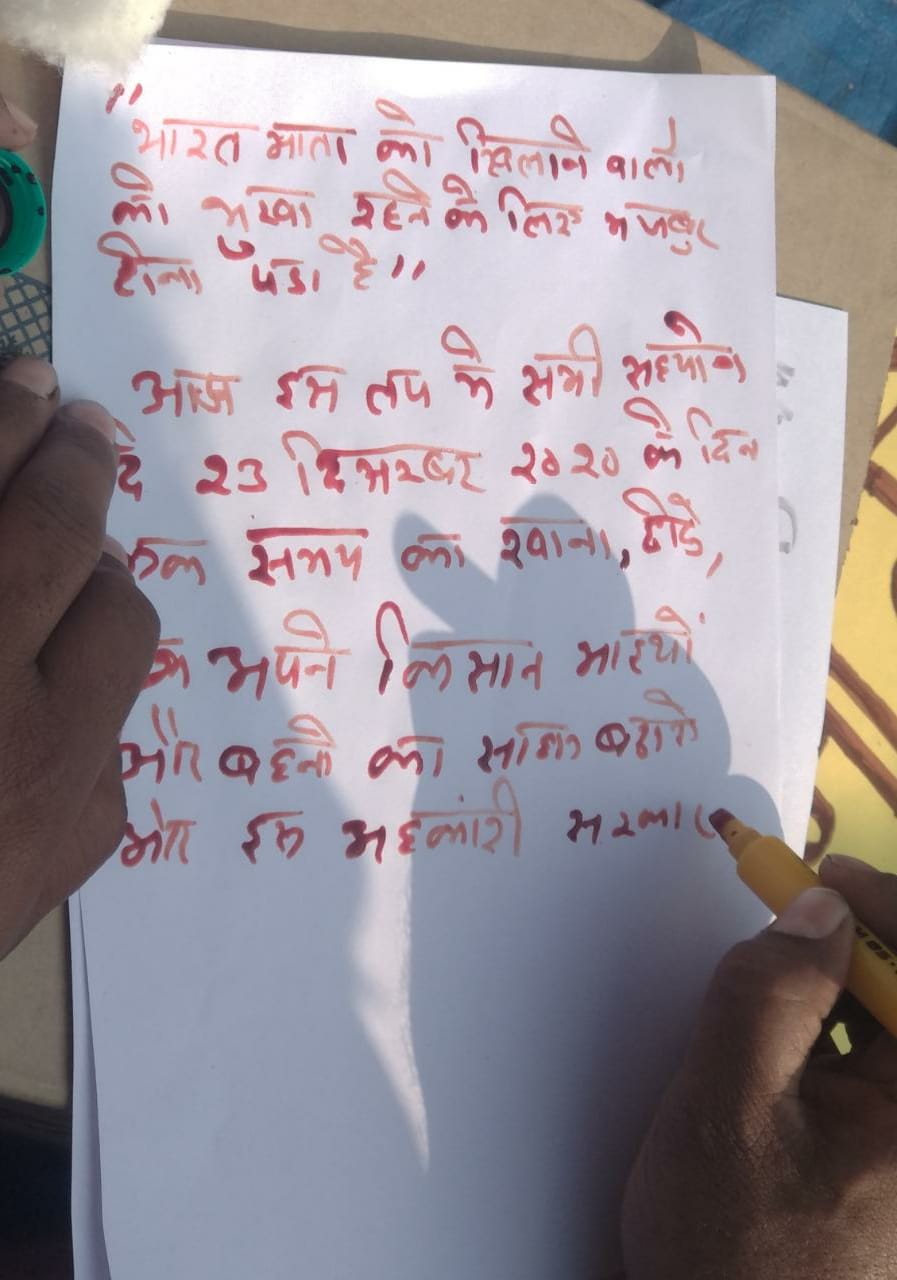 "भारत माता को खिलाने वालो
को भुखा रहने के लिए मजबुर
होना पडा है"
आज इस तप मे सभी सहयोग
दे 23 दिसम्बर २०२० के दिन
एक समय का खाना, छोडे,
अपने किसान भाइयों
और बहनो का साथ बढाने
और इस अहंकारी सरकार